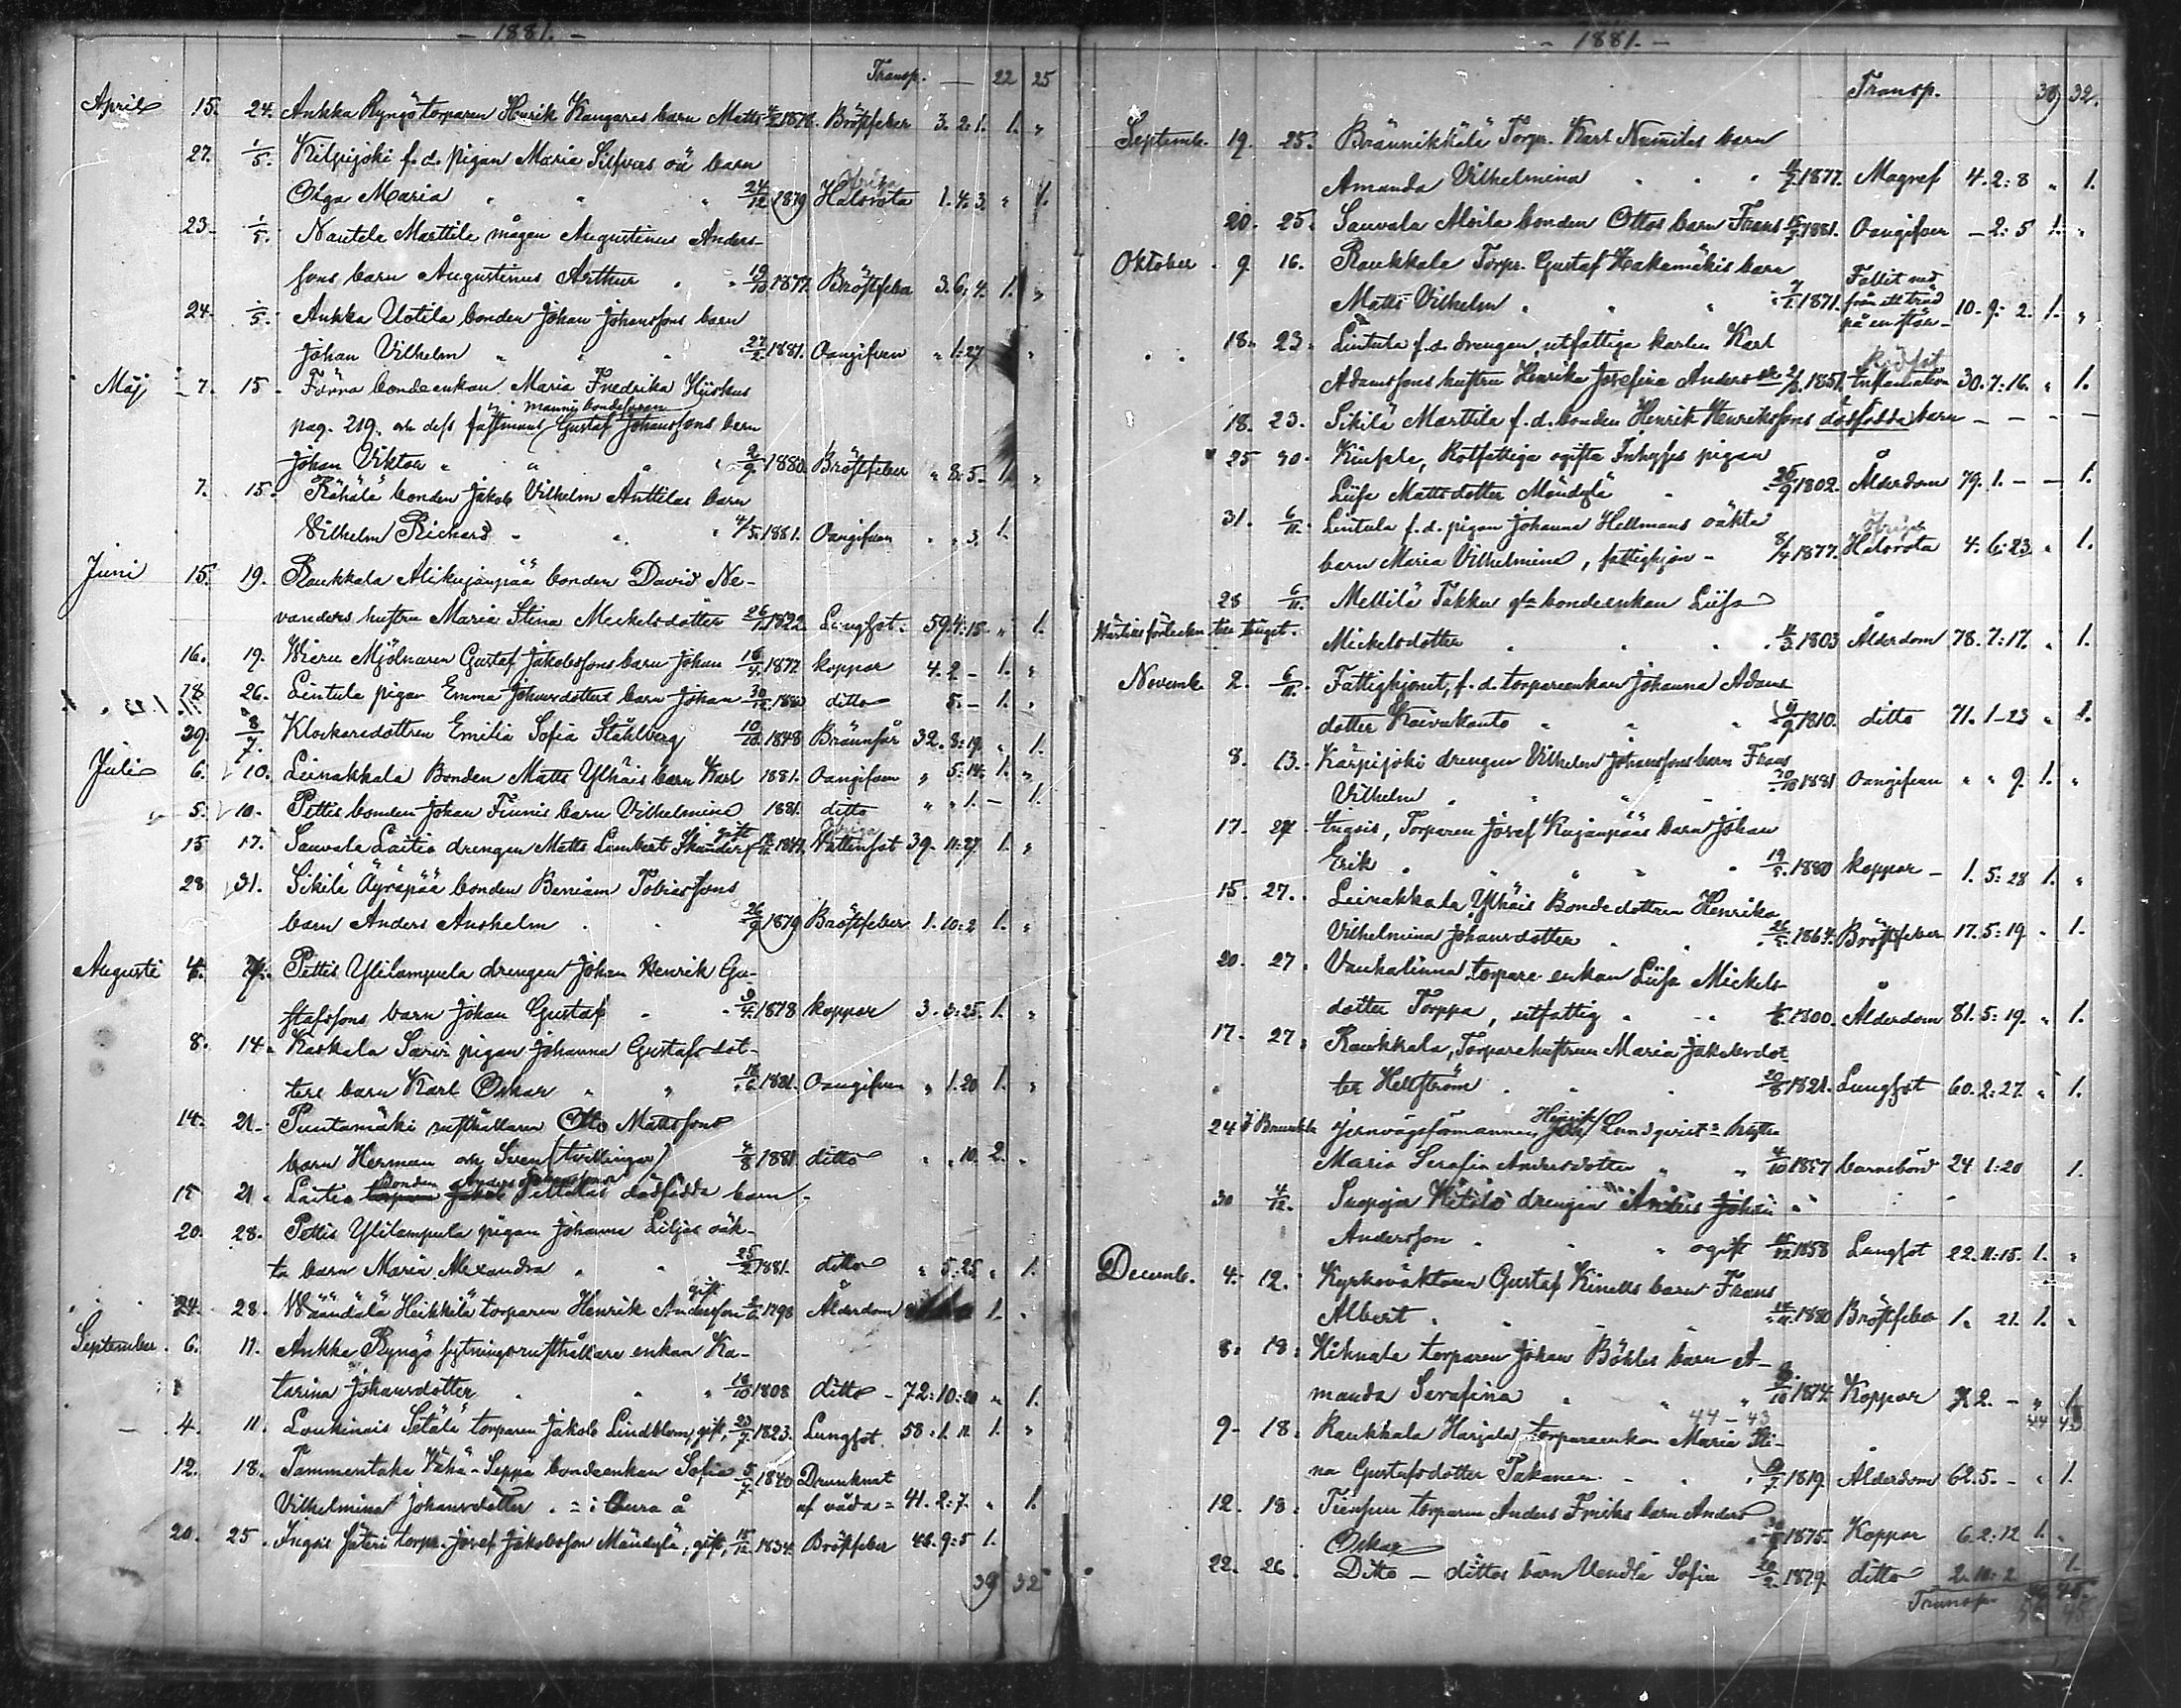 - 1881. -
Transp. — 22 25
April 15. 24. Ankka Ryngö torparen Henrik Kangares barn Matts 1878. Bröstfeber 3. 2. 1. 1. "
27. 1/5. Kilpijoki f. d. pigan Maria oä barn
Olga Maria " " " 24/12 1879 Halsröta 1. 4. 3. " 1.
23. 1/5. Nautela Marttila mågen Augustinus Anders-
sons barn Augustinus Arthur " " 19/10 1877. Bröstfeber 3. 6. 4. 1. "
24. 1/5. Ankka Uotila bonden Johan Johanssons barn
Johan Vilhelm " " " 27/2 1881. Oangifven " 1: 27 "
Maj 7. 15. Förra bondeenkan Maria Fredrika
mannis bondesonen
pag. 219. och dess fästmans Gustaf Johanssons barn
Johan Viktor " " " 2/9 1880. Bröstfeber " 8: 5. 1. "
7. 15. Kähälä bonden Jakob Vilhelm Anttilas barn
Vilhelm Richard " " " 4/5 1881. Oangifven " " 3. 1.
Juni 15. 19. Raukkala Alikujanpää bonden David Ne-
vanders hustru Maria Stina Mickelsdotter 26/1 1822. Lungsot. 59. 4: 18. " 1.
16. 19. Wieru Mjölnaren Gustaf Jakobssons barn Johan 16/4 1877. koppor 4. 2 - 1. "
18. 26. Lintula pigan Emma Johansdotters barn Johan 1880 ditto 5. - 1. "
29. 8/7. Klockaredottren Emilia Sofia Ståhlberg 10/10 1848 Brännsår 32. 8: 19. " 1.
Juli 6. 10. Leinakkala Bonden Matts Ylhäis barn Karl 1881. Oangifven " 5: 14. 1. "
5. 10. Pettis bonden Johan Finnis barn Vilhelmina 1881. ditto " " 1. — 1.
15 17. Sauvala Laitio drengen Matts Lambert gift 1847. Vattensot 39. 11: 27 1. "
28 31. Sikilä Äyräpää bonden Berriam Tobiassons
barn Anders Anshelm " " 26/9 1879 Bröstfeber 1. 10: 2 1. "
Augusti 4. 7. Pettis Ylilampula drengen Johan Henrik Gu-
stafssons barn Johan Gustaf " " 9/4 1878 koppor 3. 3: 25. 1. "
8. 14. Karkala Sarvi pigan Johanna Gustafsdot-
ters barn Karl Oskar " " 18/6 1881. Oangifven " 1. 20 1. "
14. 21. Puntamäki rusthållaren Otto Mattssons
barn Herman och Sven (tvillingar) 4/8 1881 ditto " " 10. 2. "
bonden Anders Johanssons
15 21. Laitio dödfödda barn.
20. 28. Pettis Ylilampula pigan Johanna Liljas oäk-
ta barn Maria Alexandra " " 25/2 1881. ditto " 5: 25 " 1.
gift
24. 28. Wäändälä Heikkilä torparen Henrik Andersson 1798 Ålderdom 1. "
September 6. 11. Ankka Ryngö sytningsrusthållare enkan Ka-
tarina Johansdotter " " " 18/10 1808 ditto - 72: 10: 20 " 1.
4. 11. Loukinais Setälä torparen Jakob Lindblom, gift, 23/7 1823. Lungsot. 58. 1. 11 1. "
12. 18. Tammentaka Vähä-Seppä bondeenkan Sofia 5/7 1840 Drunknat
Vilhelmina Johansdotter. = i Aura å af våda = 41. 2: 7. " 1.
20. 25. Ingois Säteri torpr. Josef Jakobsson Mändylä, gift, 15/12 1834. Bröstfeber 46. 9: 5 1.
39 32
- 1881. -
Transp. 39 32.
Septemb. 19. 25. Brännikkälä Torpr. Karl Numilas barn
Amanda Vilhelmina " " " 1877. Magref 4. 2: 8 " 1.
20. 25. Sauvala Moila bonden Ottos barn Frans 15/7 1881. Oangifven - 2: 5 1. "
Oktober. 9 16. Raukkala Torpr. Gustaf Hakamäkis barn
Matts Vilhelm " " " 7/1 1871. Fallit ned från ett träd på en 10. 9: 2. 1. "
" " 18. 23. Lintula f. d. drengen, utfattige karlen Karl
Adamssons hustru Henrika Josefina Andersdr. 2/3 1851. Inflamation 30. 7: 16. " 1.
18. 23. Sikilä Marttila f. d. bonden Henrik Henrikssons dödfödda barn - - - -
25 30. Kinfala, Rotfattiga ogifta Inhyses pigan
Liisa Mattsdotter Mändylä " 25/9 1802. Ålderdom 79. 1. - - 1.
31. 6/11. Lintula f. d. pigan Johanna Hellmans oäkta
barn Maria Vilhelmina, fattighjon - 8/4 1877. Halsröta 4. 6: 23 " 1.
28 6/11. Mellilä Takku gla bondeenkan Liisa
Mickelsdotter " " " 11/3 1803 Ålderdom 78. 7: 17. " 1.
Novemb. 2. 6/11. Fattighjonet, f. d. torpareenkan Johanna Adams-
dotter Koivukanto " " " 9/9 1810. ditto 71. 1 - 23 " 1.
8. 13. Kärpijoki drengen Vilhelm Johanssons barn Frans
Vilhelm " " " " 30/10 1881 Oangifven " " 9. 1. "
17. 27 Ingois, Torparen Josef Kujanpääs barn Johan
Erik " " " " " 19/5 1880 koppor - 1. 5: 28 1. "
15. 27. Leinakkala Ylhäis Bondedottren Henrika
Vilhelmina Johansdotter " " 26/5 1864. Bröstfeber 17. 5: 19 " 1.
20. 27. Vanhalinna torpare enkan Liisa Mickels-
dotter Torppa, utfattig " " 1800. Ålderdom 81. 5: 19. " 1.
17. 27. Raukkala, Torparehustrun Maria Jakobsdot-
ter Hellström " " " 20/8 1821. Lungsot 60. 2: 27. " 1.
24 Jernvägsförmannen Henrik Lundqvists hustru
Maria Serafia Andersdotter " " 4/10 1857 barnsbörd 24. 1: 20 1.
30 4/12. Suopoja drengen Anders Johan
Andersson " " " ogift 15/12 1858 Lungsot 22. 11: 15. 1. "
Decemb. 4. 12. Kyrkoväktaren Gustaf Kinells barn Frans
Albert " " " " 14/11 1880 Bröstfeber 1. 21. 1. "
8. 18. Hihnala torparen Johan Böhles barn A-
manda Serafina " " " 1874. Koppor 7. 2. - " 1
44 - 43 44 43
9. 18. Raukkala Harjala torpareenkan Maria Sti-
na Gustafsdotter Takanen " " " 1819. Ålderdom 62. 5. - " 1.
12. 18. Tiensuu torparen Anders Frisks barn Anders
Oskar 1875. Koppor 6. 2: 12 1. "
22. 26. Ditto - dittos barn Vendla Sofia 20/2 1879. ditto 2. 10: 2 1.
Transp. 45